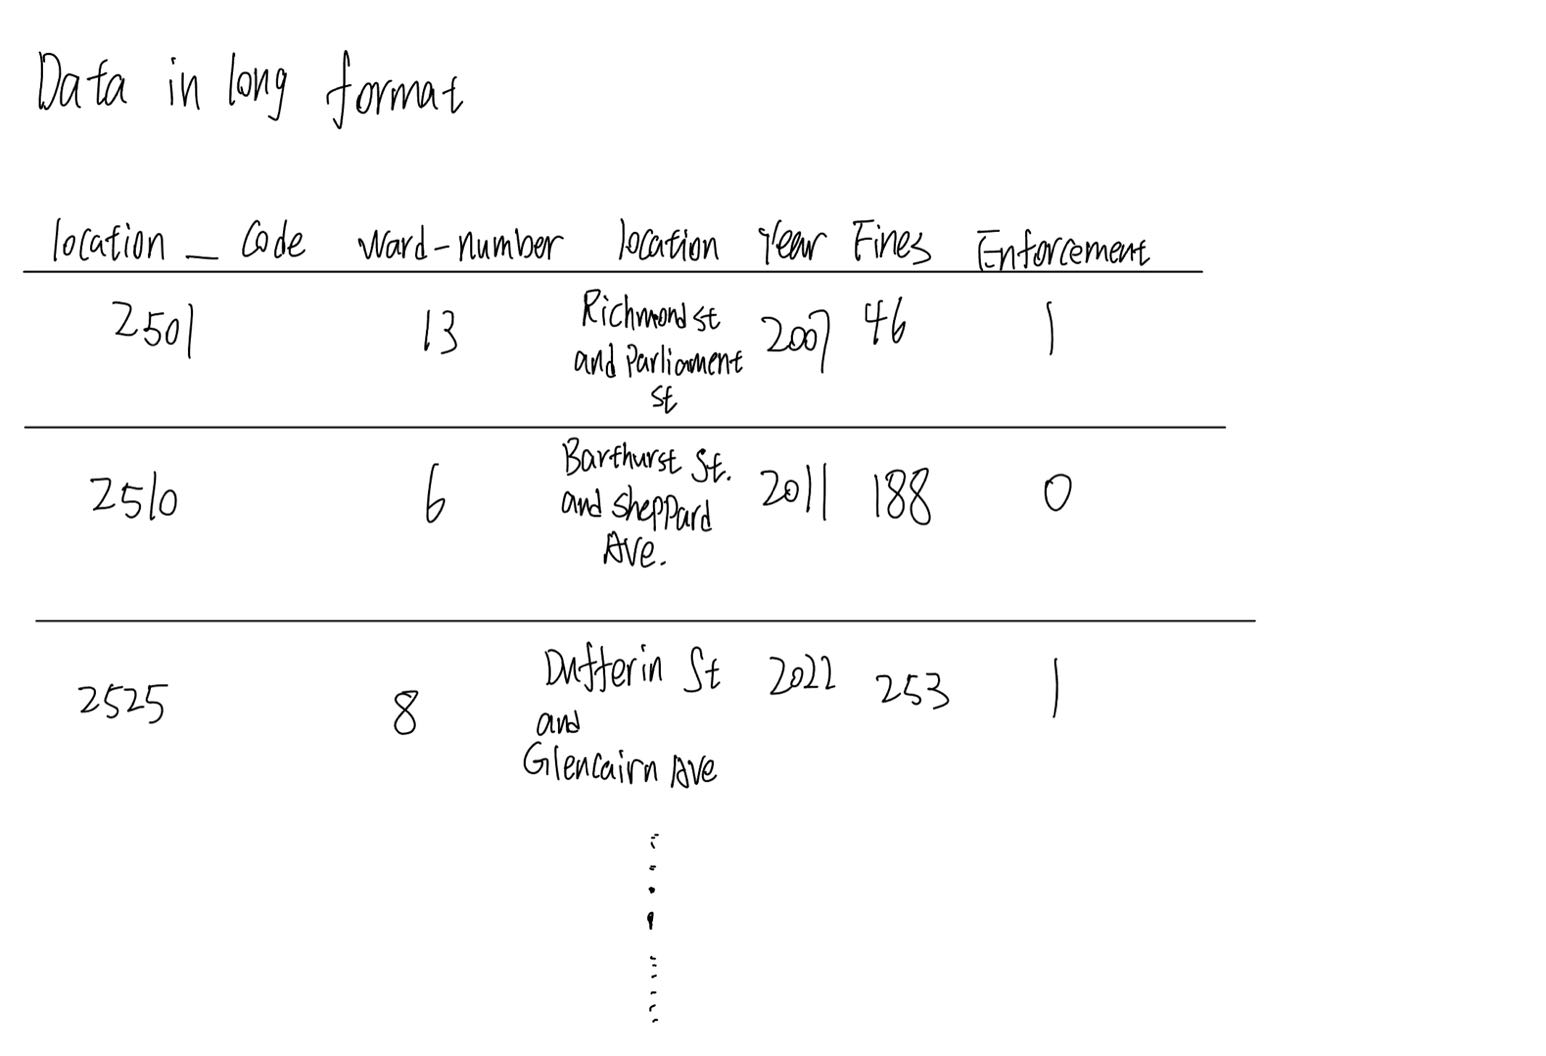 Data in long format
location _ Code Ward-number location Year Fines Enforcement
2501 13 Richmond st and Parliament st 2007 46 1
2510 6 Barthurst St. and Sheppard Ave. 2011 188 0
2525 8 Dufferin St and Glencairn Ave 2022 253 1